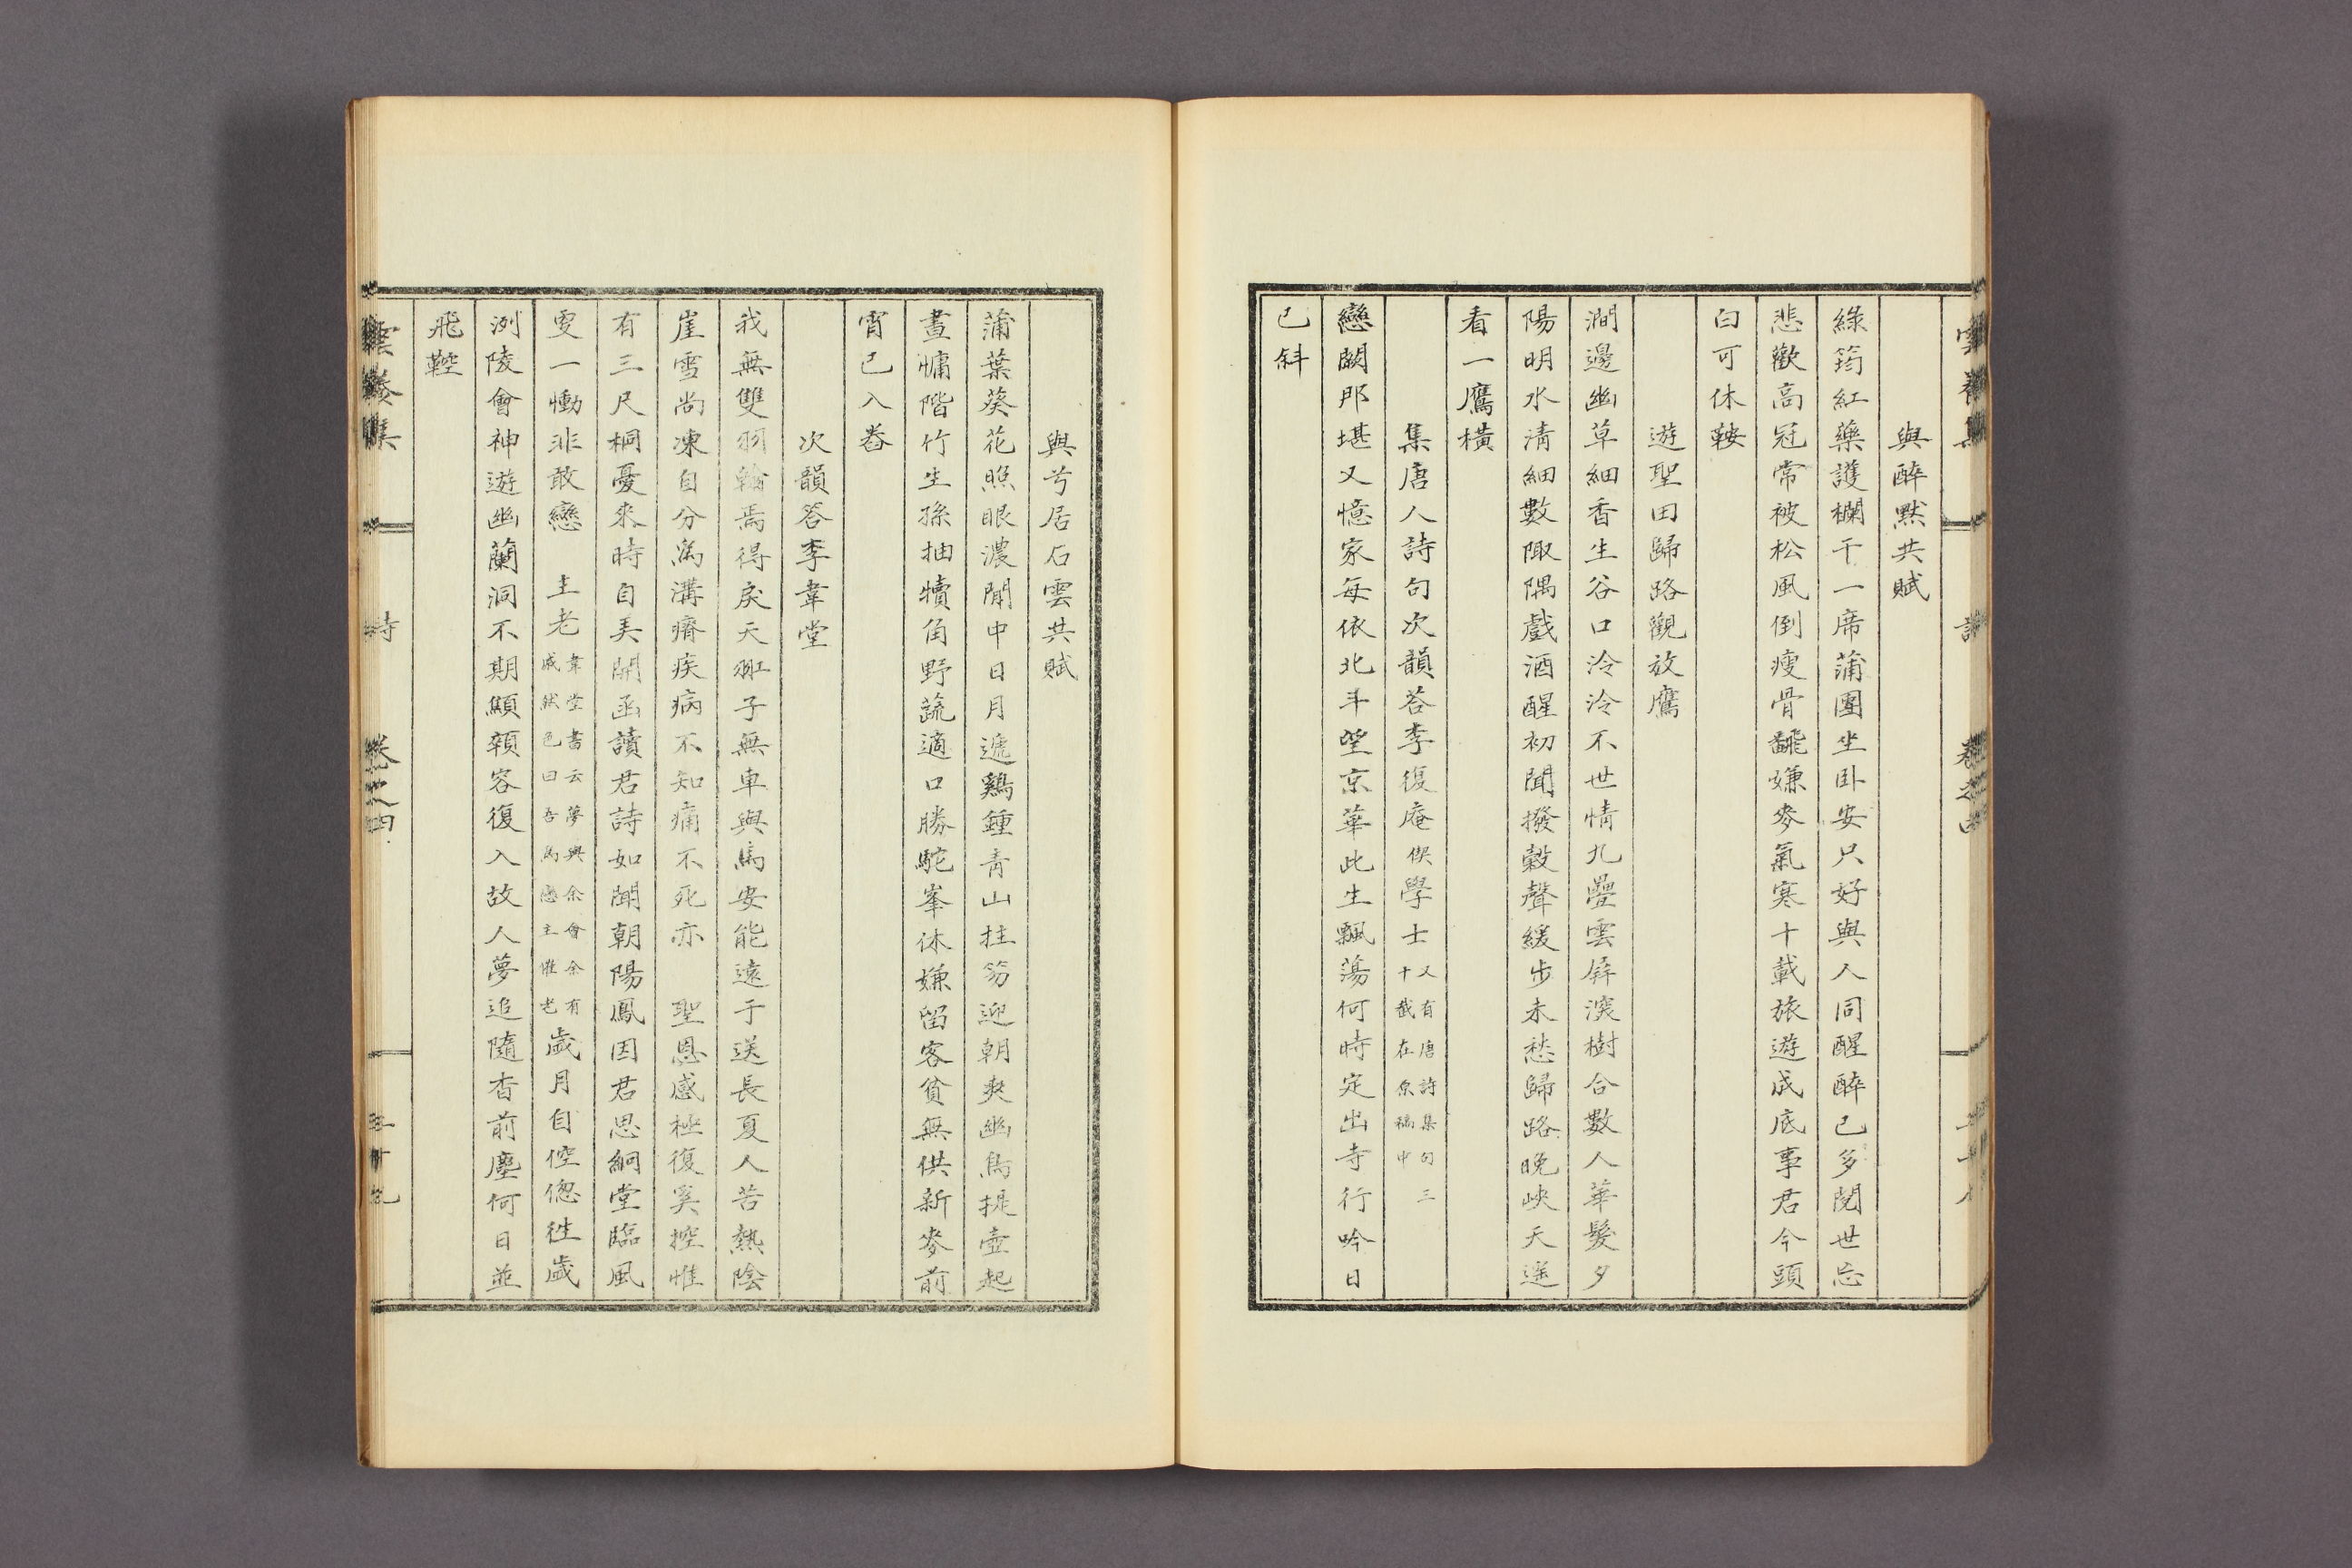 與醉默共賦
綠筠紅藥護欄干一席蒲團坐臥安只好與人同醒醉已多閱世忘
悲歡高冠常被松風倒瘦骨翻嫌麥氣寒十載旅遊成底事君今頭
白可休鞍
遊聖田歸路觀放鷹
澗邊幽草細香生谷口泠泠不世情九疊雲屛濃樹合數人華髮夕
陽明水淸細數陬隅戱酒醒初聞撥穀聲緩步未愁歸路晚峽天遙
看一鷹橫
集唐人詩句次韻答李復庵偰學士
又有唐詩集句三
十截在原稿中
戀闕那堪又憶家每依北斗望京華此生飄蕩何時定出寺行吟日
已斜
與兮居石雲共賦
蒲葉葵花照眼濃閒中日月遞鷄鍾靑山拄笏迎朝爽幽鳥提壺起
晝慵階竹生孫抽犢角野蔬適口勝駝峯休嫌留客貧無供新麥前
宵已入舂
次韻答李韋堂
我無雙羽翰焉得戾天䲨子無車與馬安能遠于送長夏人苦熱陰
崖雪尚凍自分爲溝瘠疾病不知痛不死亦 聖恩感極復奚控惟
有三尺桐憂來時自弄開函讀君詩如聞朝陽鳳因君思絅堂臨風
㪅一慟非敢戀 主老
韋堂書云夢與余會余有
戚然色曰吾馬戀主惟老
歲月自倥傯徃歲
洌陵會神遊幽蘭洞不期顦顇容復入故人夢追隨杳前塵何日並
飛鞚
雲養集 詩 卷之四